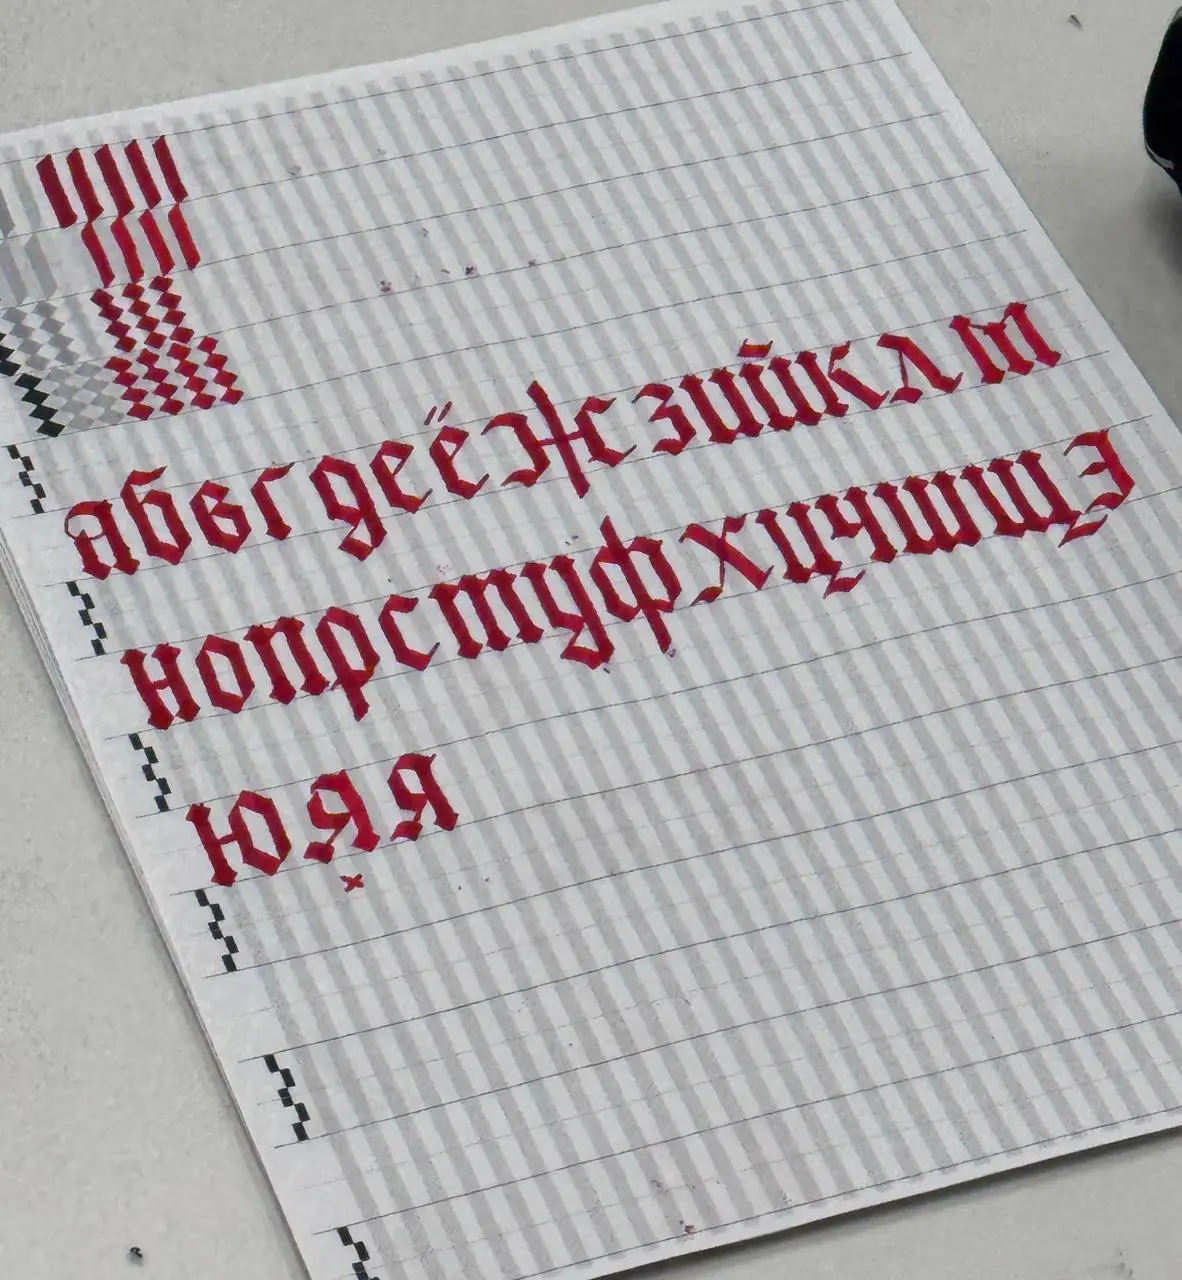 абвгдеёжзийклм
нопрстуфхцчшщэ
юяя